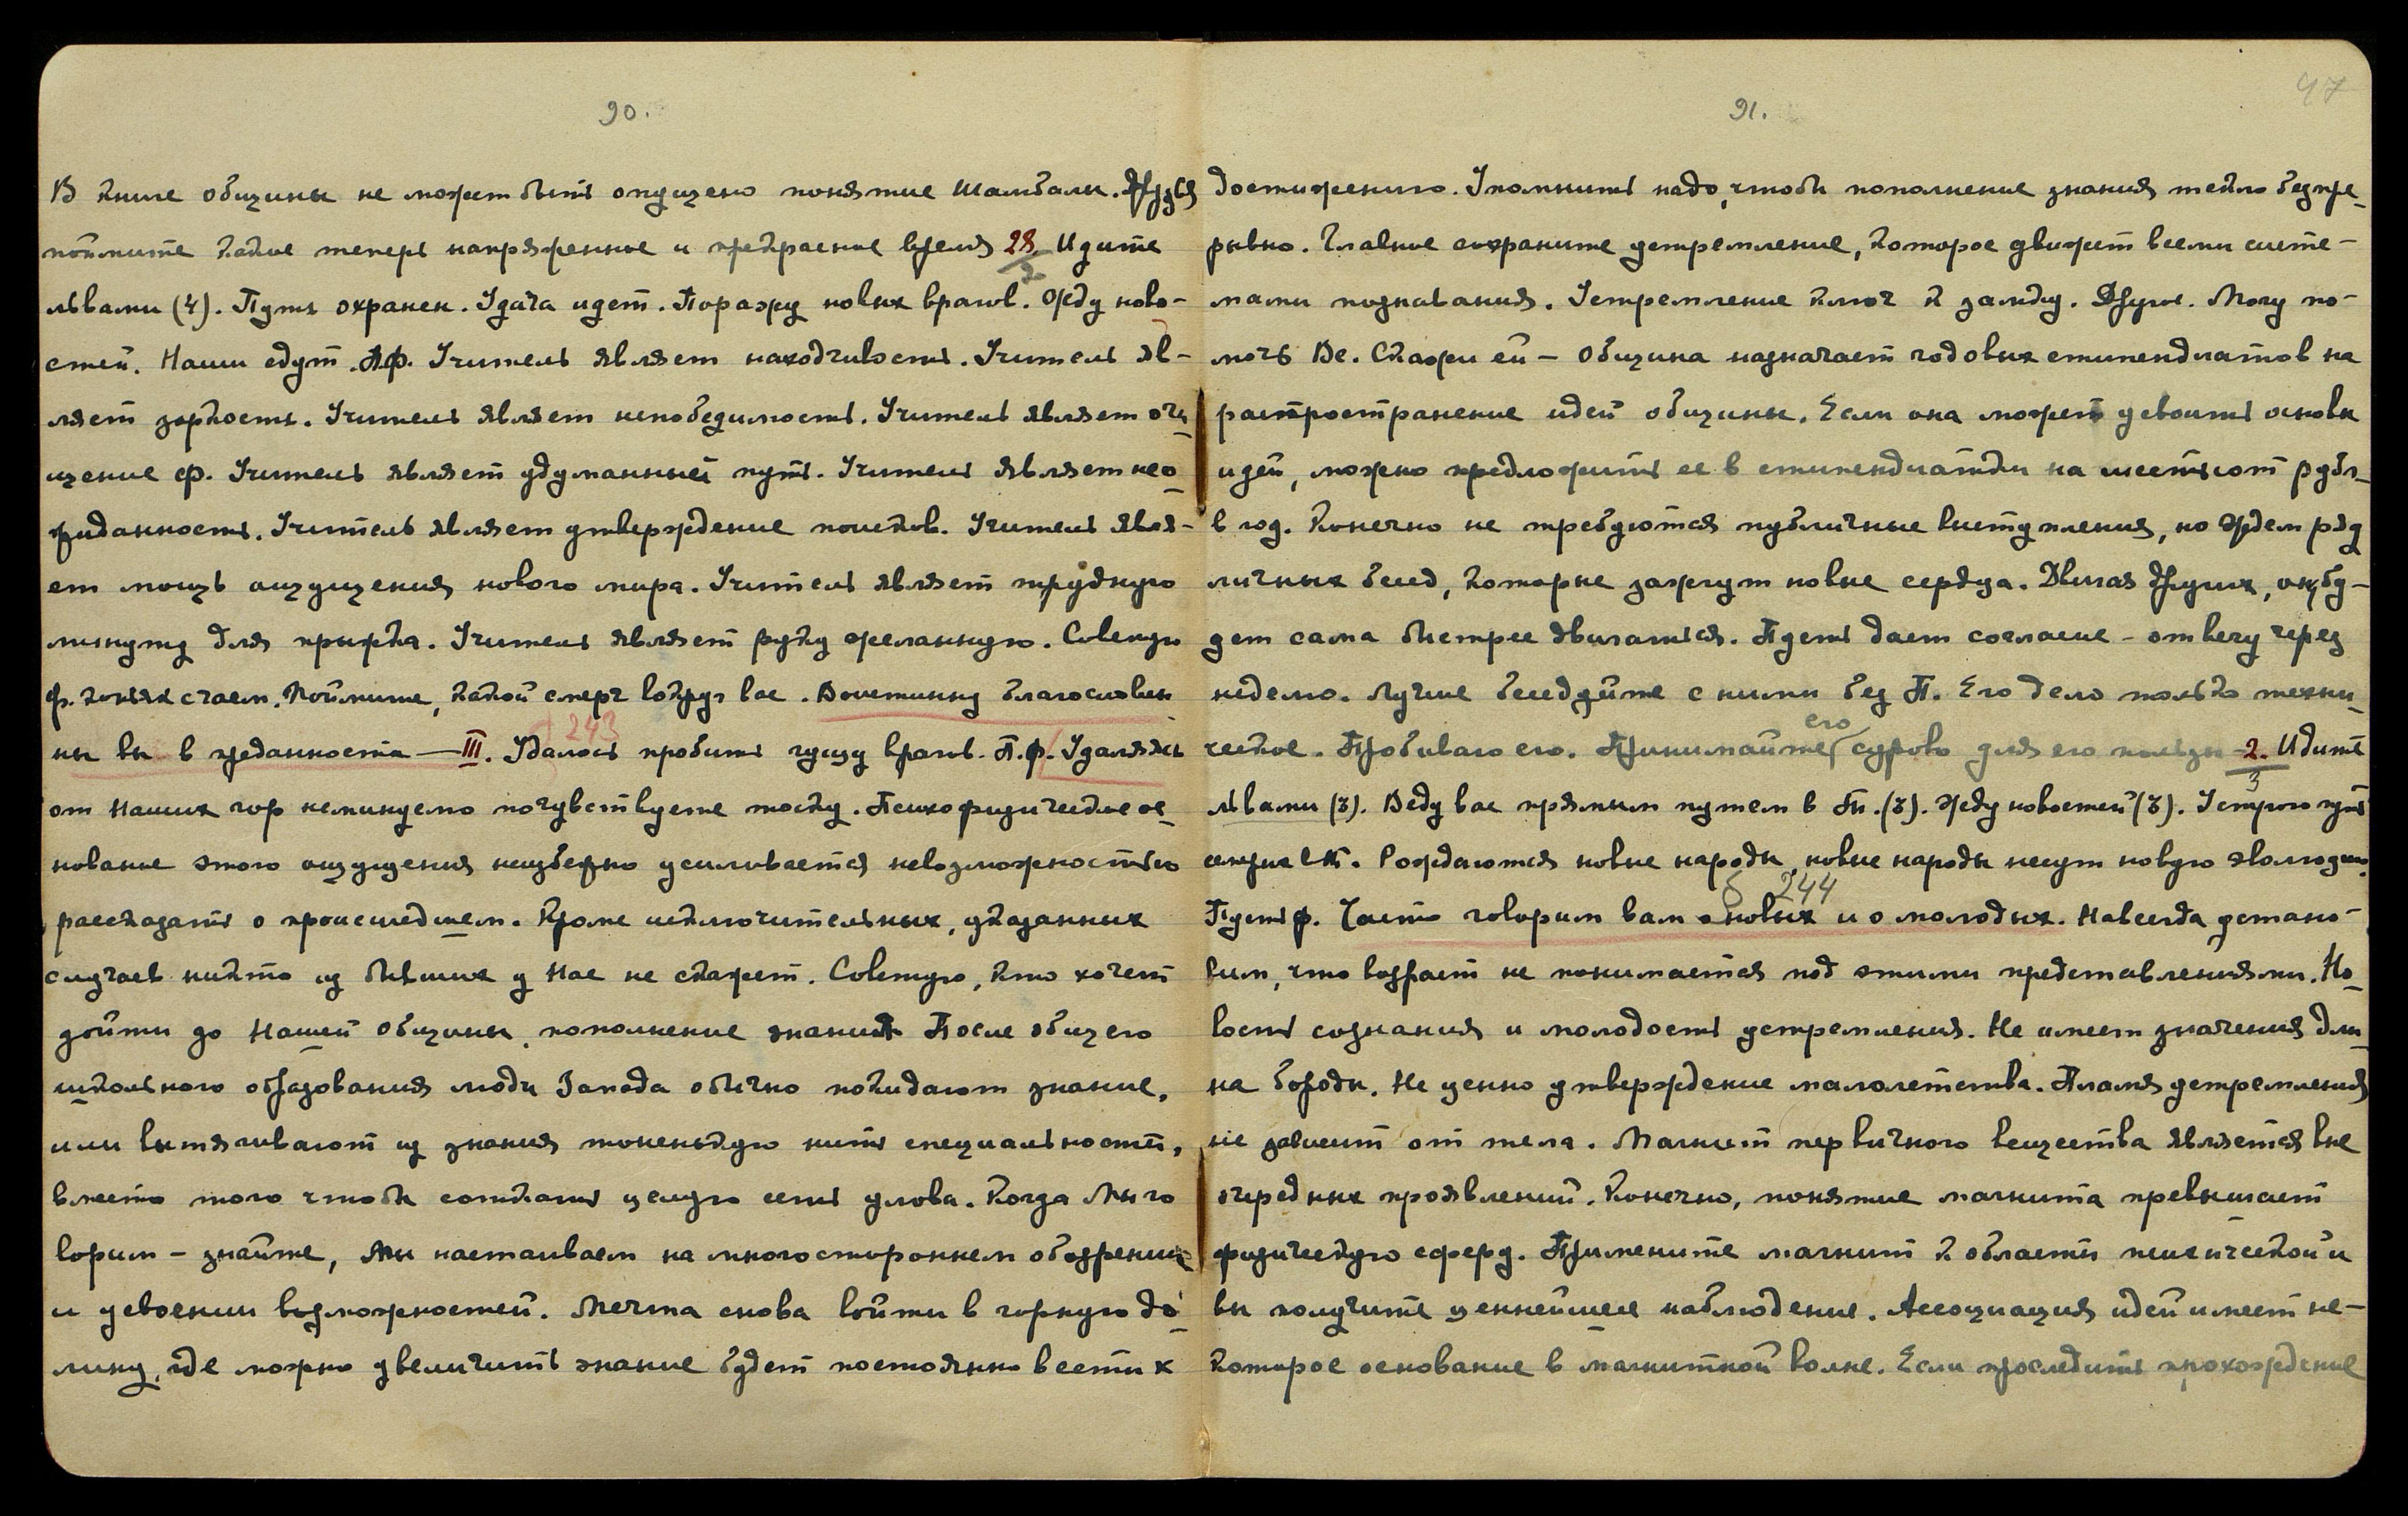 90.
В книге общины не может быть опущено понятие Шамбалы. Друзья
поймите какое теперь напряженное и прекрасное время 28/2 Идите
львами (4). Путь охранен. Удача идет. Поражу новых врагов. Жду ново-
стей. Наши едут. Учитель являет находчивость. Учитель яв-
ляет зоркость. Учитель являет непобедимость. Учитель являет очи
щение ф. Учитель являет удуманный путь. Учитель являет нео
жиданность. Учитель являет утверждение поисков. Учитель явля-
ет мощь ощущения нового мира. Учитель являет трудную
минуту для прыжка. Учитель являет руку желанную. Советую
ф. Поймите, какой смерч вокруг вас. Воистину благословен
ны вы в преданности — III. Удалось пробить гущу врагов. П.ф. Удаляясь
243
от Наших гор неминуемо почувствуете тоску. Психофизическое ос
нование этого ощущения неизбежно усиливается невозможностью
рассказать о происшедшем. Кроме исключительных, указанных
случаев никто из бывших у Нас не скажет. Советую, кто хочет
дойти до Нашей общины, пополнение знания После общего
школьного образования люди Запада обычно покидают знание,
или вытягивают из знания тоненькую нить специальности,
вместо того чтобы соткать целую сеть улова. Когда Мы го
ворим – знайте, Мы настаиваем на многостороннем обозрении
и усвоении возможностей. Мечта снова войти в горную до
лину, где можно увеличить знание будет постоянно вести к
47
91.
достижению. Упомнить надо, чтобы пополнение знания текло беспре
рывно. Главное сохраните устремление, которое движет всеми систе-
мами познавания. Устремление ключ к замку. Другое. Могу по-
мочь Ве. Скажи ей – Община назначает годовых стипендиатов на
распространение идей общины. Если она может усвоить основы
идей, можно предложить ее в стипендиатки на шестьсот рубл.
в год. Конечно не требуются публичные выступления, но ждем ряд
личных бесед, которые зажгут новые сердца. Двигая других, она бу-
дет сама быстрее двигаться. Пусть дает согласие – отвечу через
неделю. Лучше беседуйте с ними без П. Его дело только техни
ческое. Пробиваю его. Принимайте его сурово для его пользы – 2/3. Идите
львами (8). Веду вас прямым путем в (8). Жду новостей (8). Устрою путь
Рождаются новые народы, новые народы несут новую эволюцию.
244
Пусть ф. Часто говорим вам о новых и о молодых. Навсегда устано-
вим, что возраст не понимается под этими представлениями. Но
вость сознания и молодость устремления. Не имеет значения дли
на бороды. Не ценно утверждение малолетства. Пламя устремления
не зависит от тела. Магнит первичного вещества является вне
очередных проявлений. Конечно, понятие магнита превышает
физическую сферу. Примените магнит к области психической и
вы получите ценнейшее наблюдение. Ассоциация идей имеет не-
которое основание в магнитной волне. Если проследить прохождение